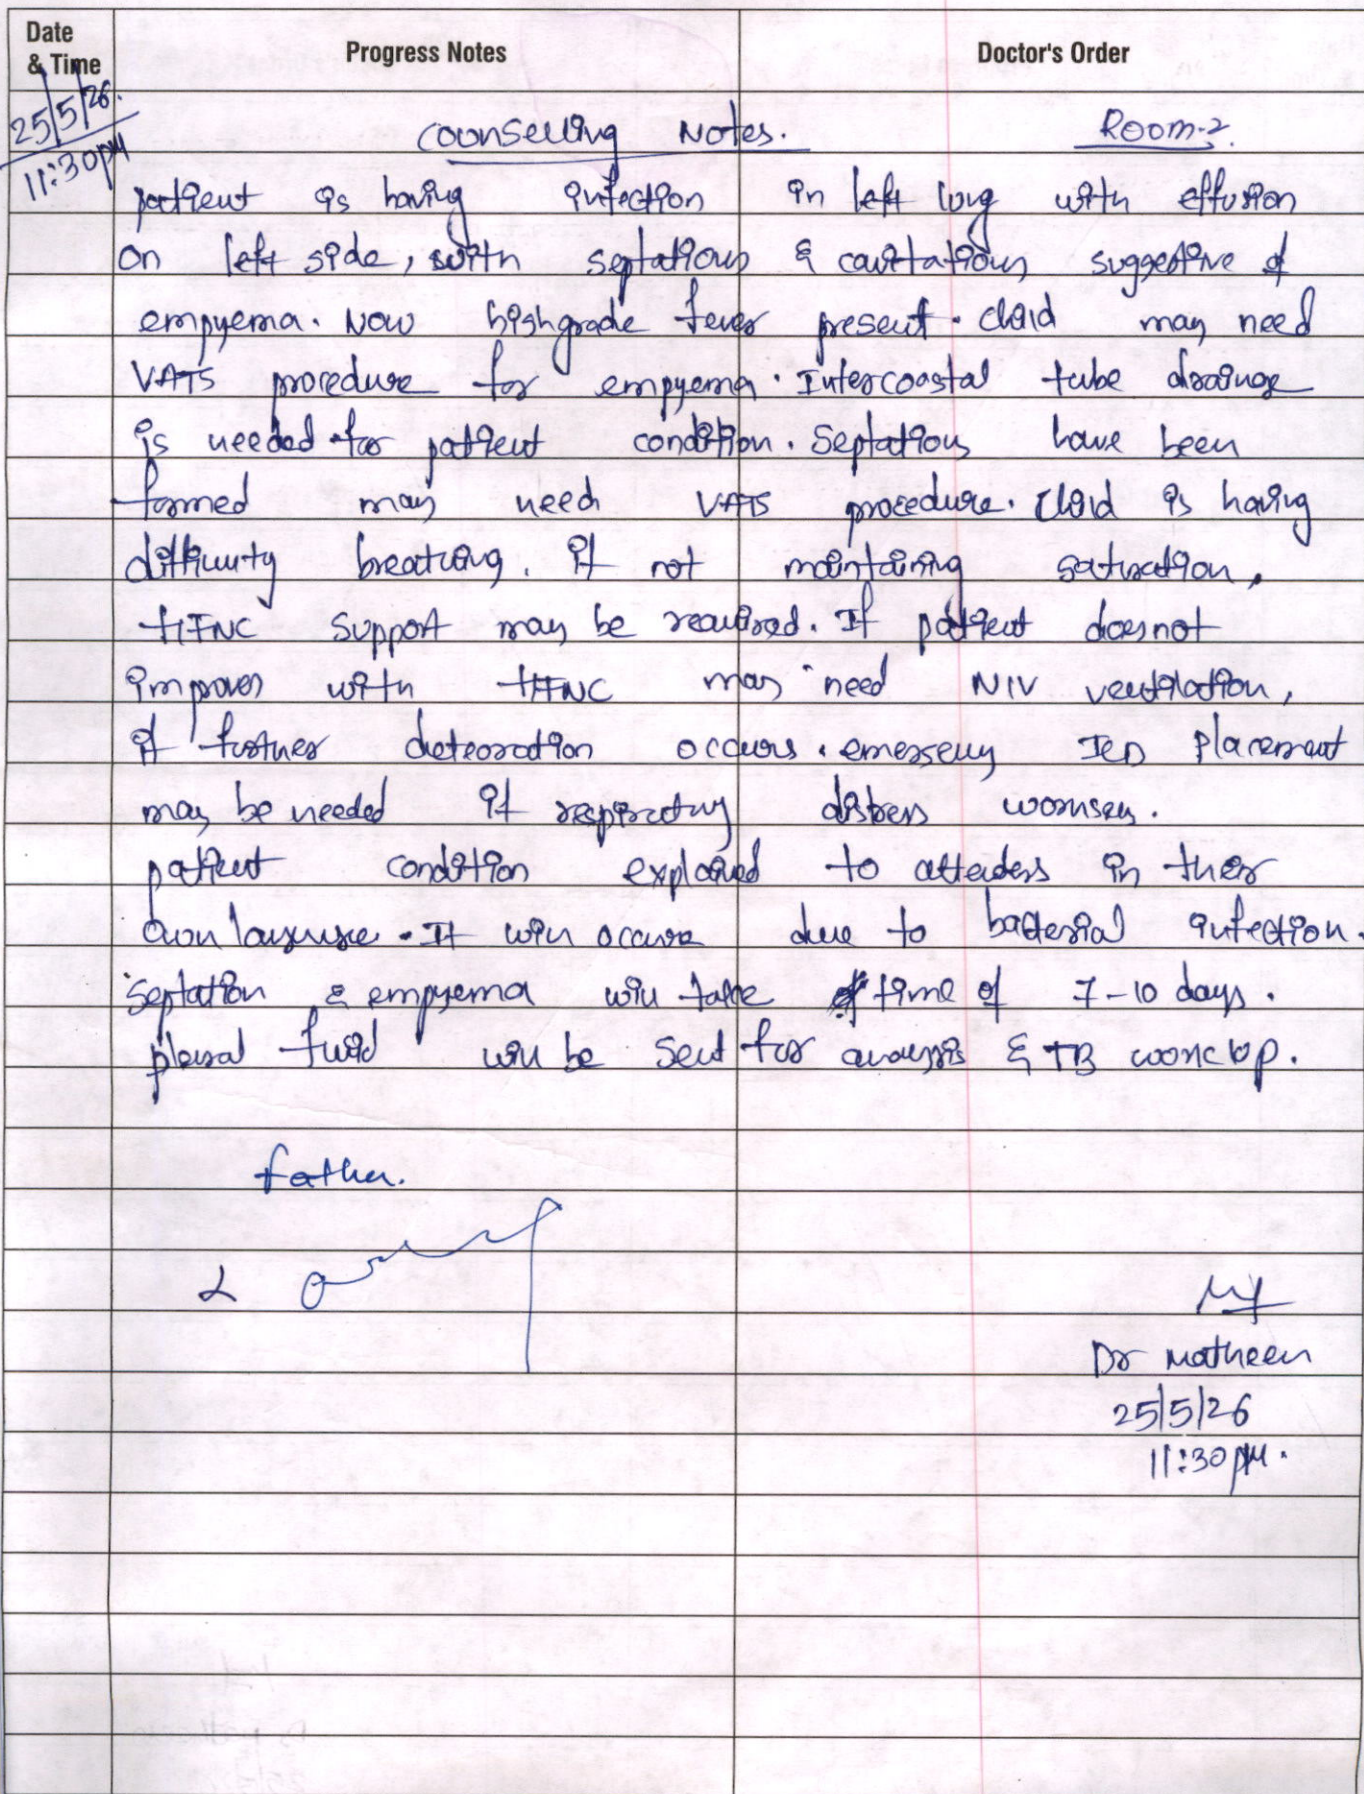 Date & Time Progress Notes Doctor's Order
25/5/26. 11:30pM
Counselling Notes. Room-2.
patient is having infection in left lung with effusion
on left side, with septations & cavitations suggestive of
empyema. Now highgrade fever present. child may need
VATS procedure for empyema. Intercoastal tube drainage
is needed for patient condition. Septations have been
formed may need VATS procedure. Child is having
difficulty breathing. if not maintaining saturation,
HFNC support may be required. If patient doesnot
improves with HFNC may need NIV ventilation,
if further deterioration occurs. emergency ICD placement
may be needed if respiratory distress worsen.
patient condition explained to attenders in their
own language. It will occure due to bacterial infection.
Septation & empyema will take time of 7-10 days.
pleural fluid will be sent for analysis & TB workup.
father.
Dr Matheen
25/5/26
11:30pM.